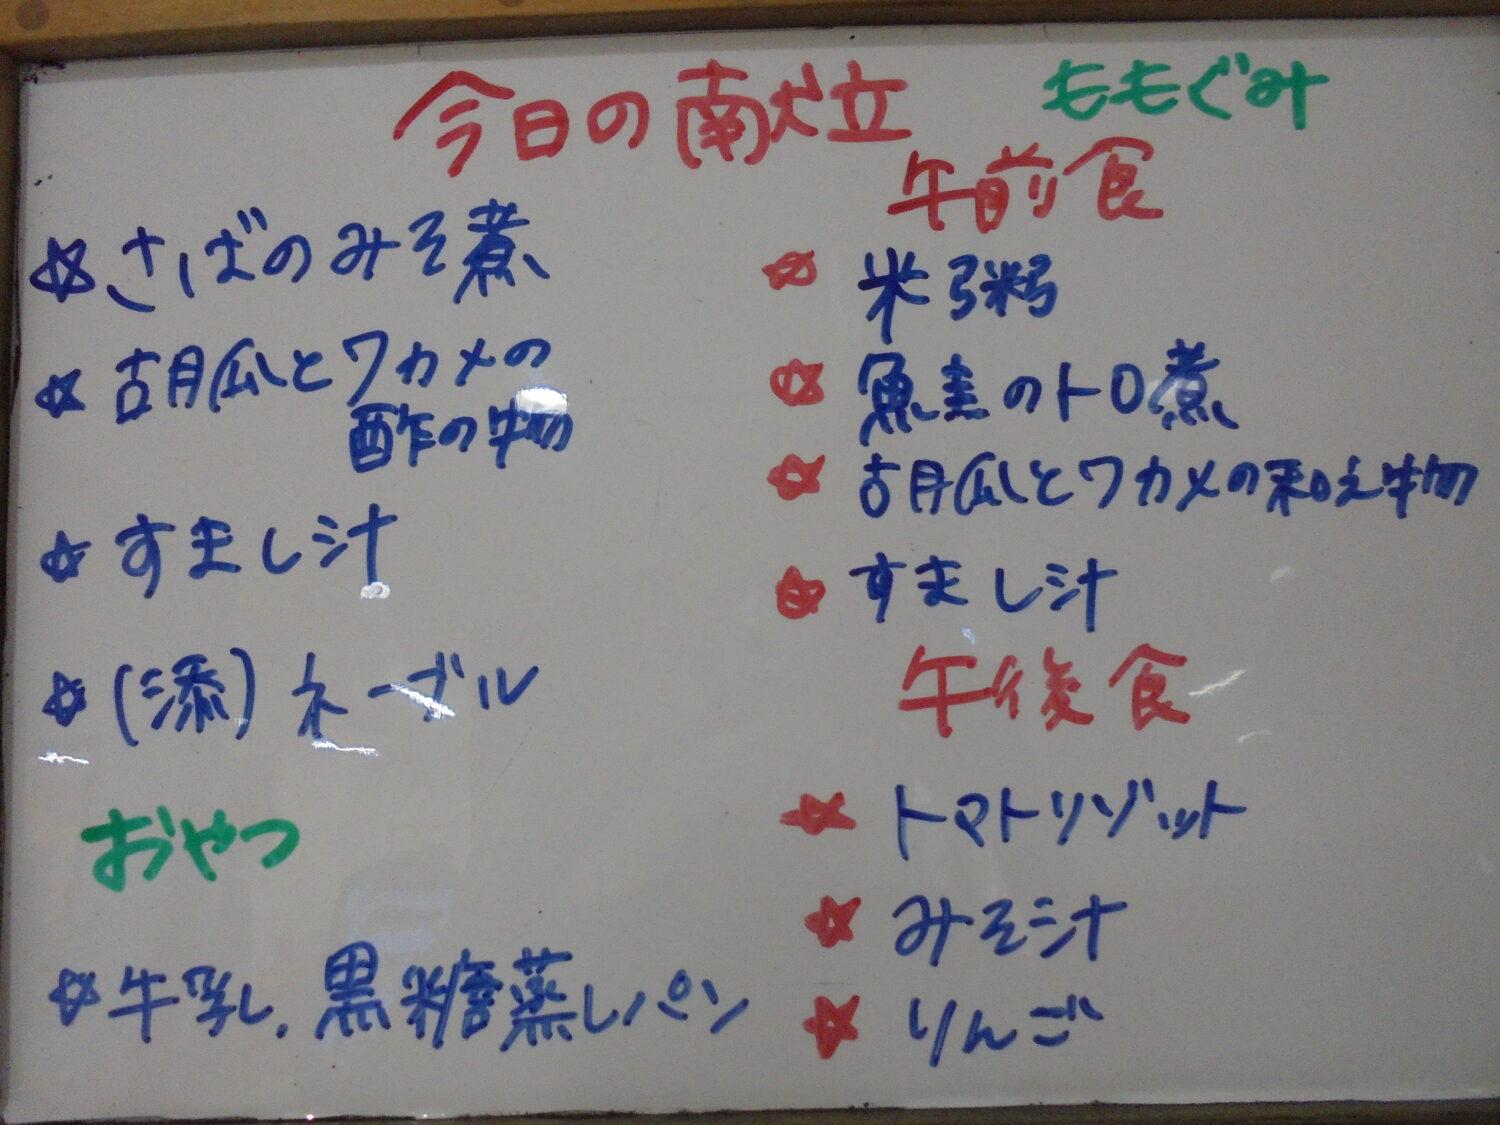 今日の献立
☆さばのみそ煮
☆胡瓜とワカメの
酢の物
☆すまし汁
☆(添)ネーブル
おやつ
☆牛乳.黒糖蒸しパン
ももぐみ
午前食
☆米粥
☆魚のトロ煮
☆胡瓜とワカメの和え物
☆すまし汁
午後食
☆トマトリゾット
☆みそ汁
☆りんご